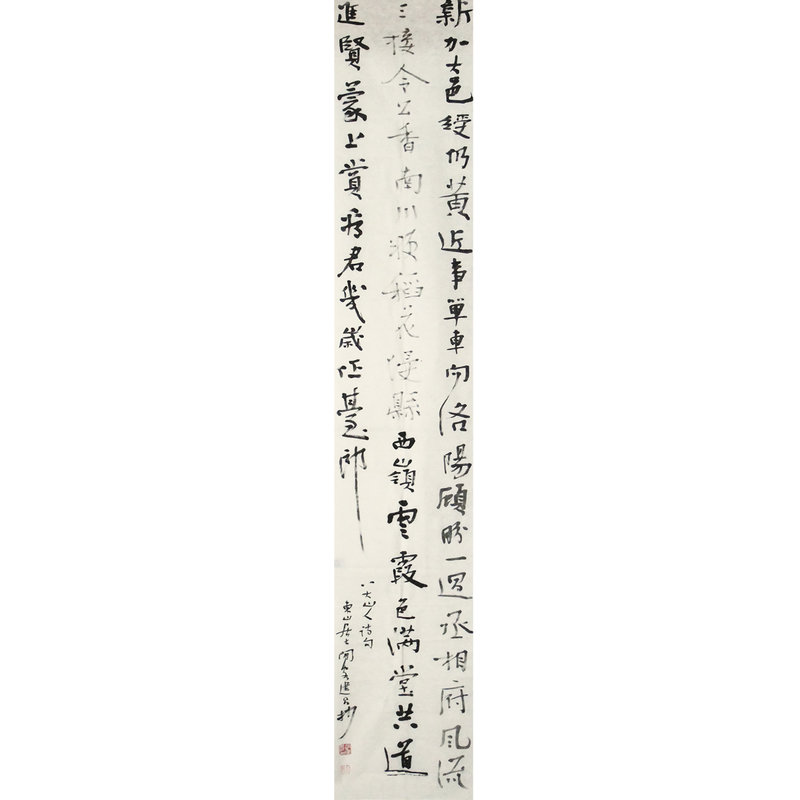 新加大邑綬仍黄近事單車向洛陽顧盼一過丞相府風流
三接令公香南川粳稻花侵縣西嶺雲霞色滿堂共道
進賢蒙上賞看君幾歲任臺郎
八大山人詩句
東山居士